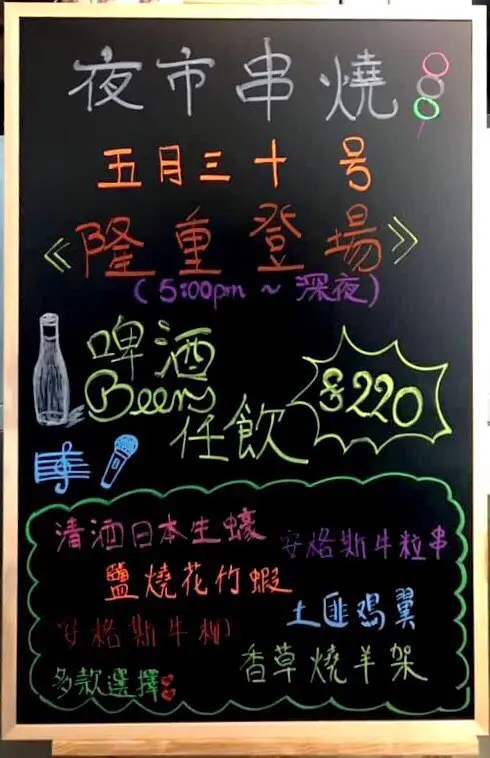 夜市串燒
五月三十号
《隆重登場》
(5:00pm ~ 深夜)
啤酒
Beers
任飲
$220
清酒日本生蠔
安格斯牛粒串
鹽燒花竹蝦
土匪鸡翼
安格斯牛
香草燒羊架
多款選擇